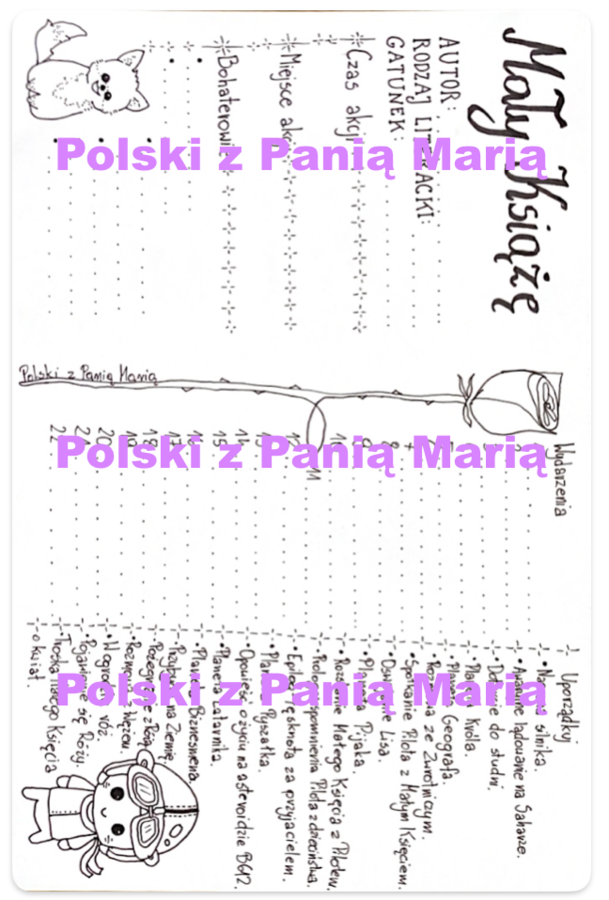 Mały Książę
AUTOR:
RODZAJ LITERACKI:
GATUNEK:
Czas akcji
Miejsce akcji
Bohaterowie
Polski z Panią Marią
Polski z Panią Marią
Polski z Panią Marią
Polski z Panią Marią
Wydarzenia
7
8
10
11
12
14
15
17
18
19
20
21
22
Uporządkuj
• Naprawa silnika.
• Awaryjne lądowanie na Saharze.
• Dotarcie do studni.
• Planeta Króla.
• Planeta Geografa.
• Rozmowa ze Zwrotniczym.
• Spotkanie Pilota z Małym Księciem.
• Oswojenie Lisa.
• Planeta Pijaka.
• Rozstanie Małego Księcia z Pilotem.
• Prolog: wspomnienia Pilota z dzieciństwa.
• Epilog: Tęsknota za przyjacielem.
• Planeta Pyszałka.
• Opowieść o życiu na asteroidzie B612.
• Planeta Latarnika.
• Planeta Biznesmena.
• Przybycie na Ziemię.
• Pożegnanie z Różą.
• Rozmowa z Wężem.
• W ogrodzie róż.
• Pojawienie się Róży.
• Troska Małego Księcia
o kwiat.